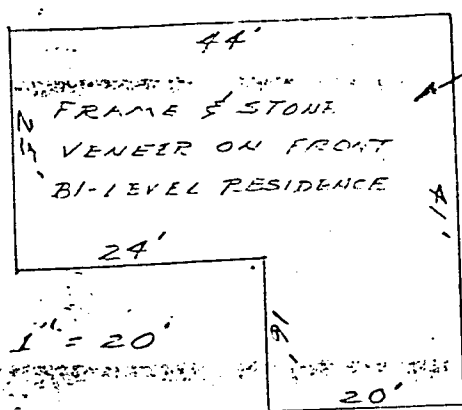 44'
FRAME & STONE
25'
VENEER ON FRONT
BI-LEVEL RESIDENCE
41'
24'
1" = 20'
16'
20'